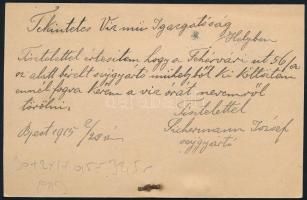 Tekintetes Vizmü Igazgatóság
Helyben
Tisztelettel értesitem hogy a Fehérvári út 56/a
sz alatt bérelt szijgyártó mühelyből ki költöztem
ennél fogva kérem a viz órát nevemről
törölni.
Tisztelettel
Bpest 1915
József
szijgyártó